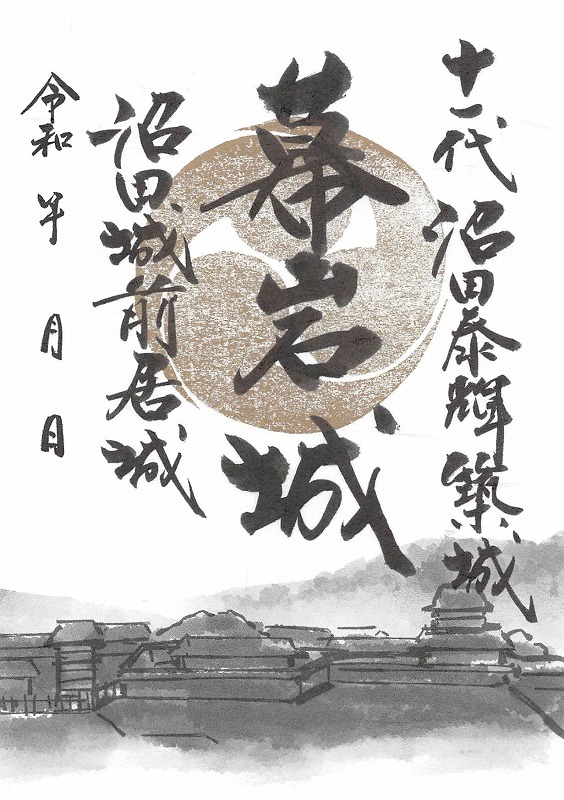 十一代 沼田泰輝築城
幕岩城
沼田城前居城
令和 年 月 日